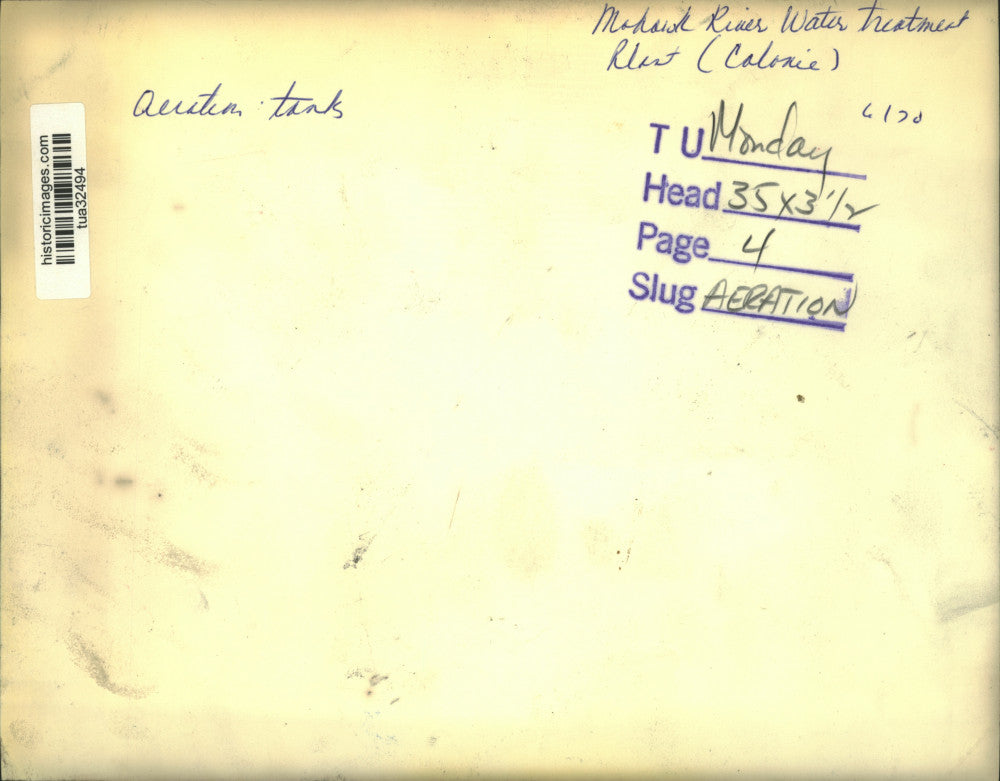 Mohawk River Water Treatment
Plant (Colonie)
Aeration tanks
6/70
T U Monday
Head 35x3 1/2
Page 4
Slug AERATION
historicimages.com
tua32494